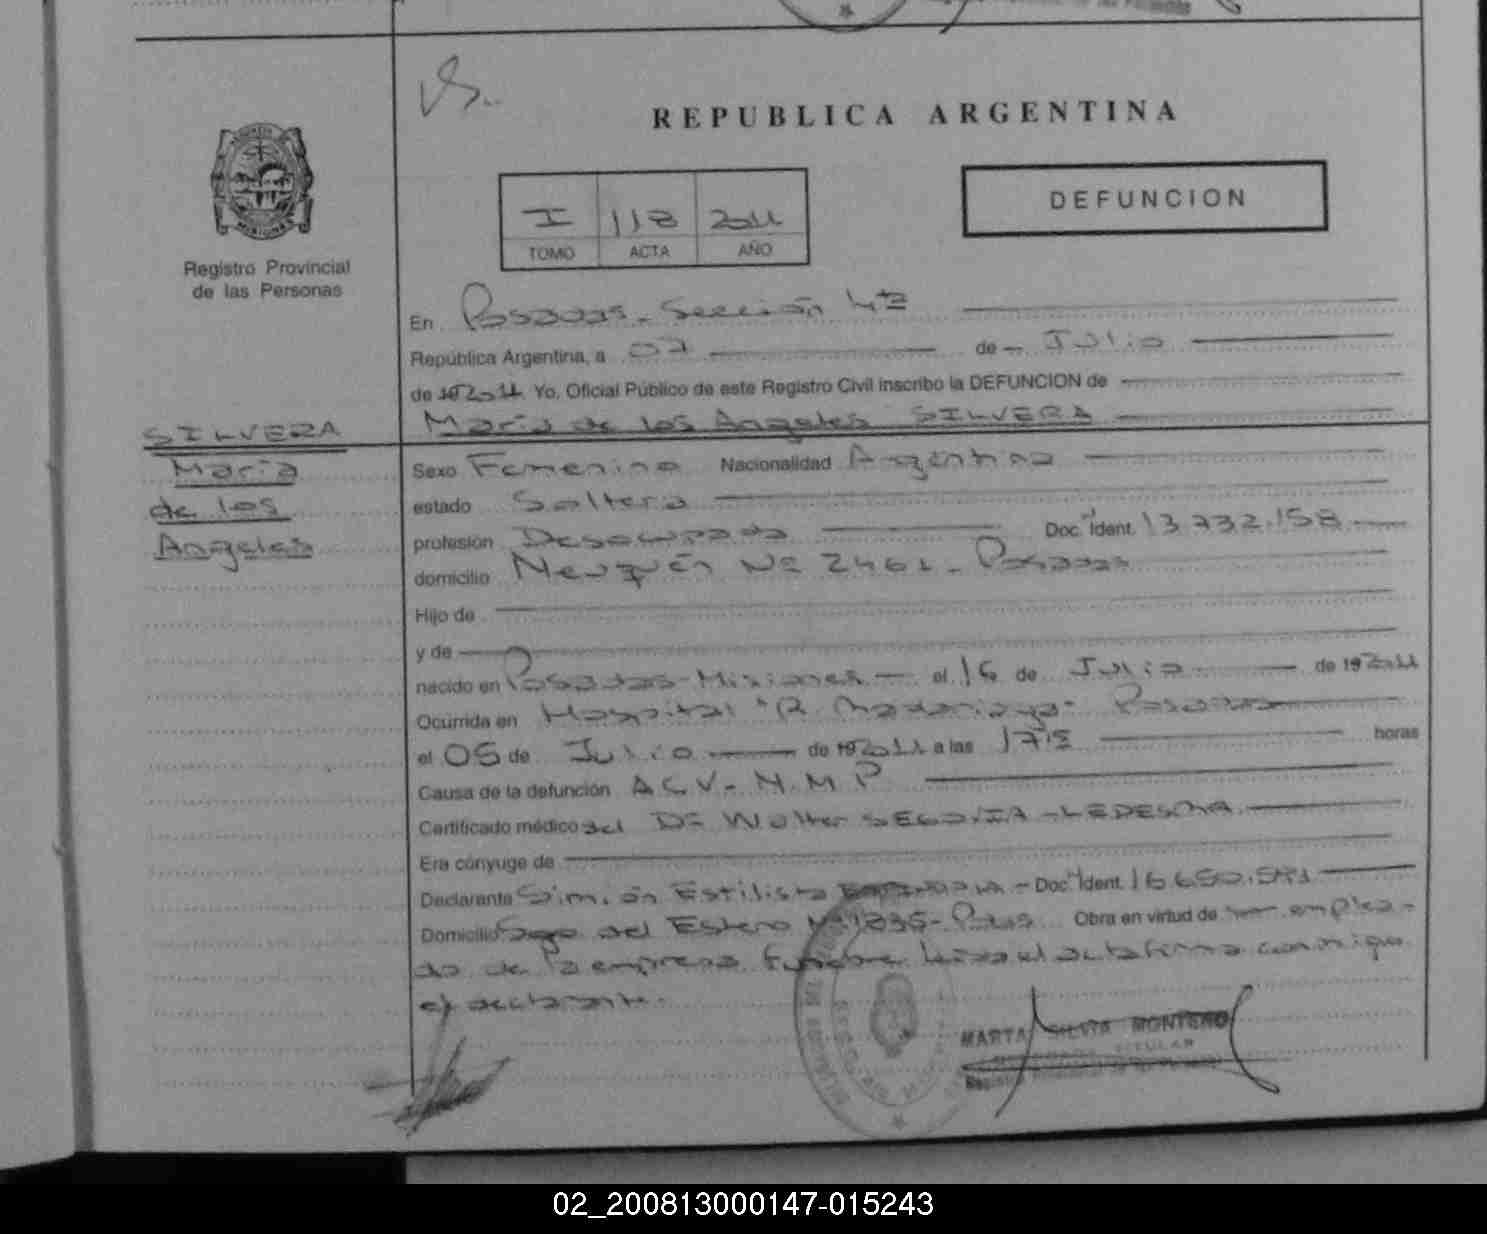 REPUBLICA ARGENTINA
DEFUNCION
I 118 2011
TOMO ACTA AÑO
Registro Provincial
de las Personas
En Posadas - Sección 4ta
República Argentina, a 07 de Julio
de 19 2011 Yo, Oficial Público de este Registro Civil inscribo la DEFUNCION de
María de los Angeles SILVERA
SILVERA
María
de los
Angeles
Sexo Femenino Nacionalidad Argentina
estado Soltera
profesión Desocupada Doc. Ident. 13.732.158
domicilio Neuquén Nº 2461 - Posadas
Hijo de
y de
nacido en Posadas - Misiones el 16 de Julio de 19 2011
Ocurrida en Hospital "R. Madariaga" Posadas
el 05 de Julio de 19 2011 a las 17 15 horas
Causa de la defunción ACV - N.M.P
Certificado médico del Dr Walter SEGOVIA - LEDESMA
Era cónyuge de
Declarante Simión Estilisto Doc. Ident. 16.650.591
Domicilio Sgo del Estero Nº 1835 - Pdas Obra en virtud de ser emplea-
do de la empresa fúnebre leída el acta firma conmigo
el declarante.
MARTA SILVIA MONTERO
TITULAR
02_200813000147-015243